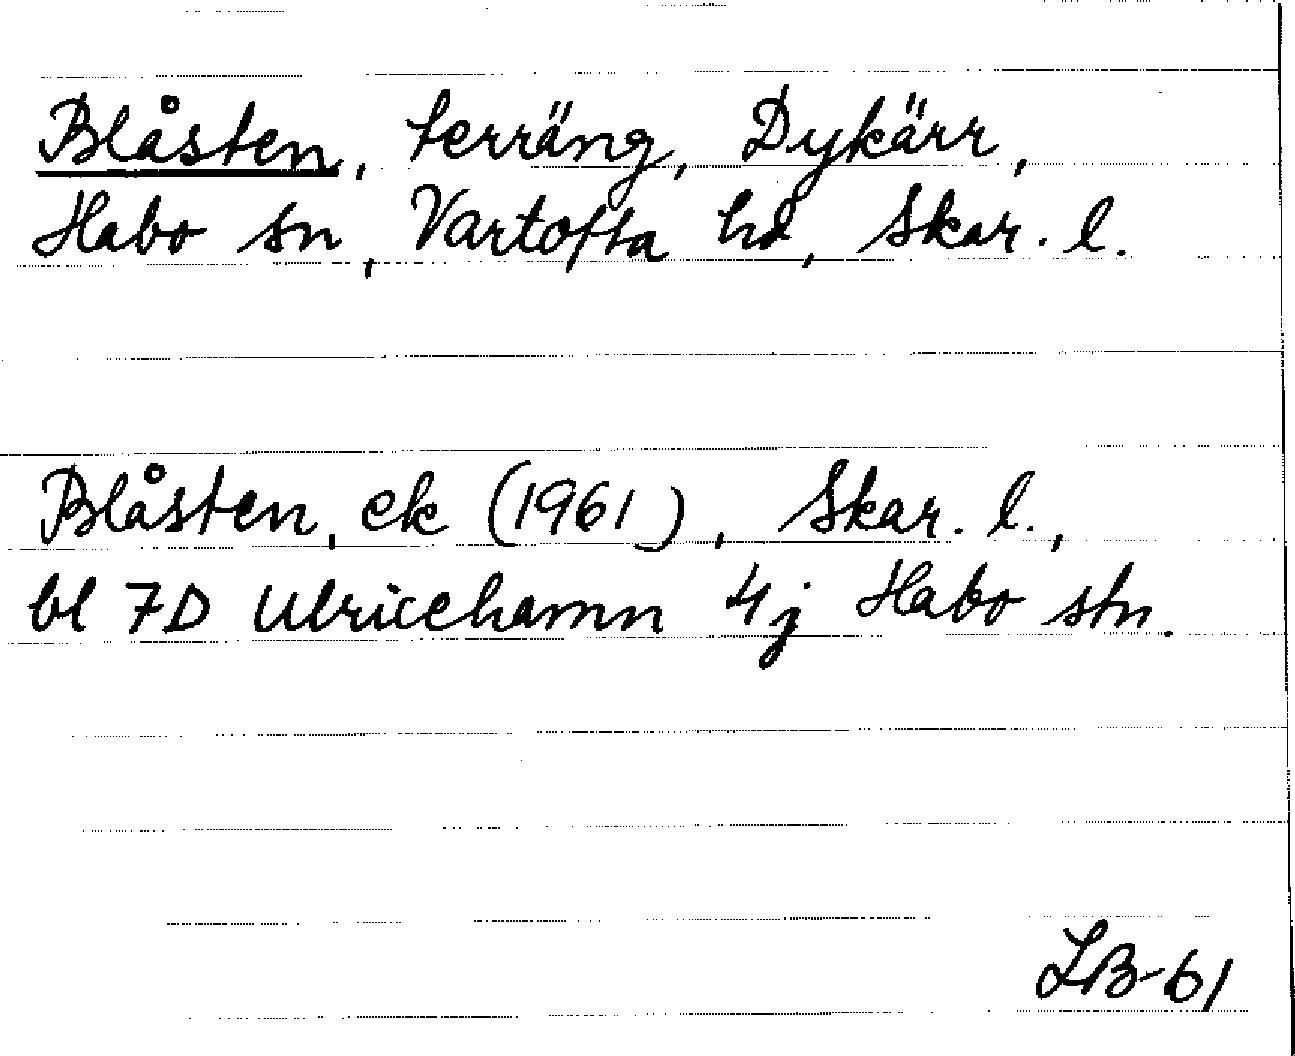 Blåsten, terräng, Dykärr,
Habo sn, Vartofta hd, Skar. l.
Blåsten, ek (1961), Skar. l.,
bl 7D Ulricehamn 4j Habo stn.
LB-61